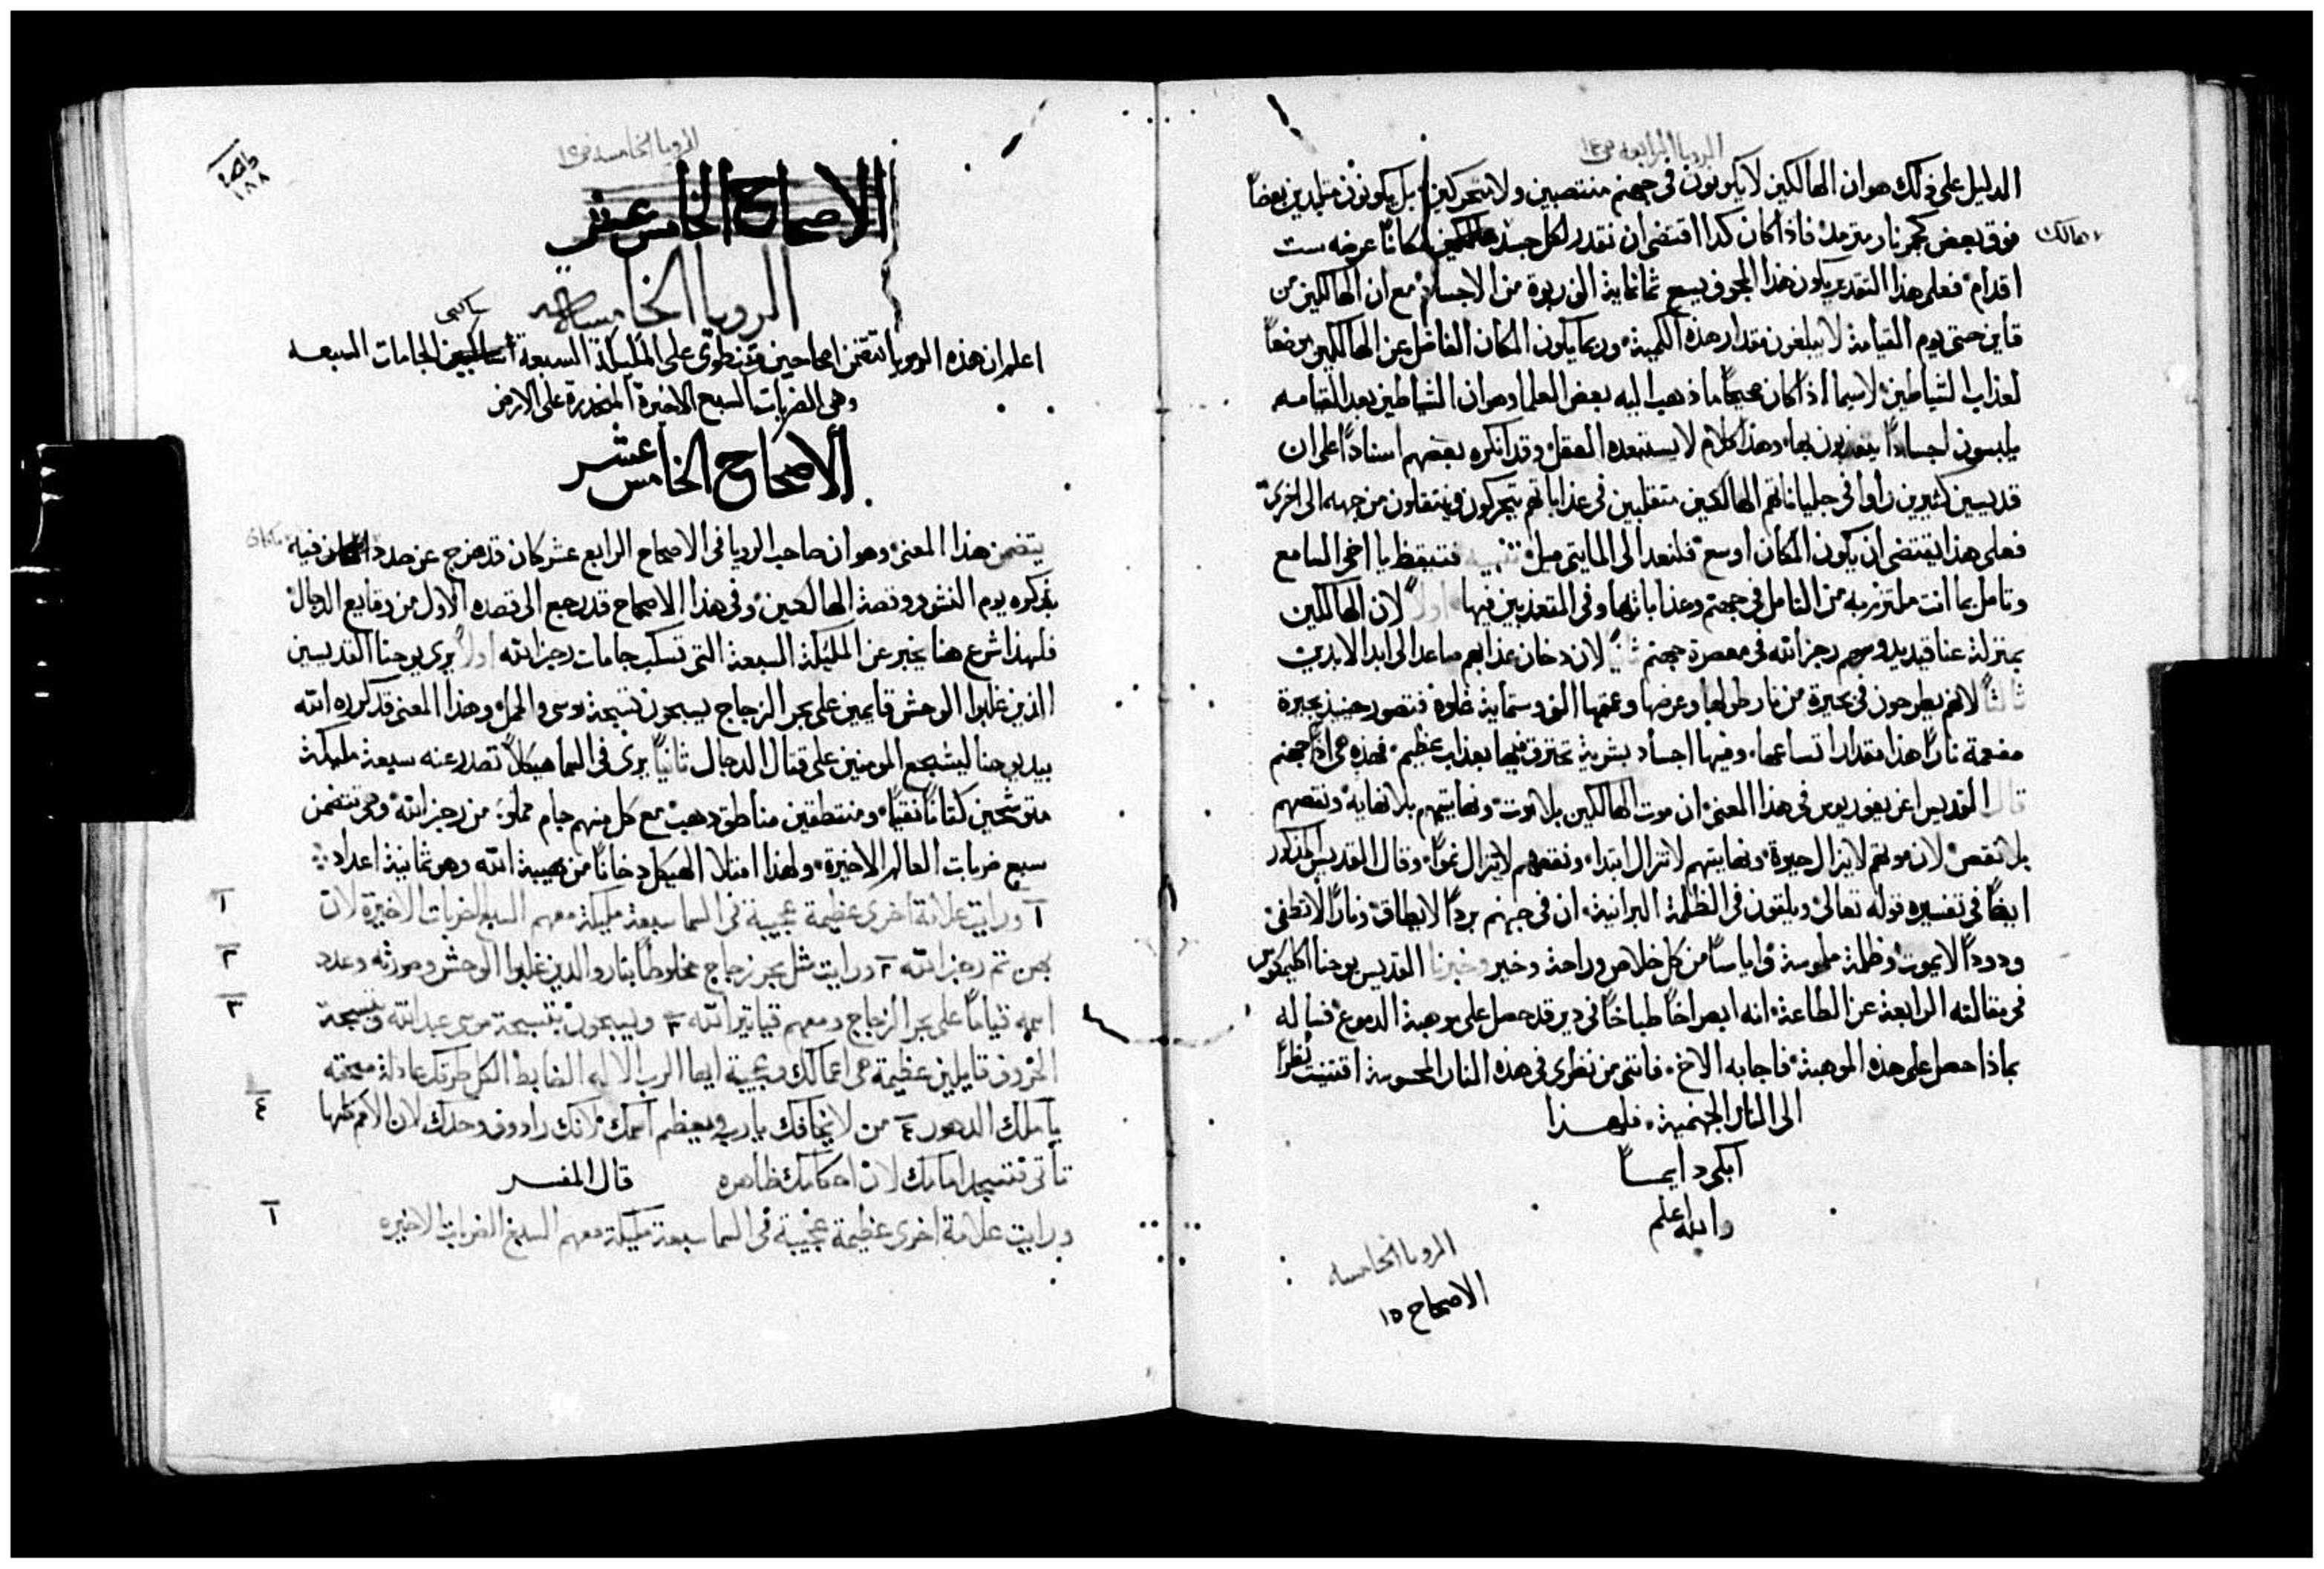 الرويا الرابعه ص ١٤
الدليل على ذلك هو ان الهالكين لا يكونون في جهنم منتصبين ولا متحركين بل يكونون متلبدين بعضاً
فوق بعض كجمر نار مترمد فاذا كان كذا اقتضى ان نقدر لكل جسد مكاناً عرضه ست
هالك
اقدام فعلى هذا التقدير يكون هذا الجوف يسع ثمانماية الف ربوة من الاجساد مع ان الهالكين من
قاين حتى يوم القيامة لا يبلغون مقدار هذه الكمية وربما يكون المكان الفاضل عن الهالكين موضعاً
لعذاب الشياطين لاسيما اذا كان صحيحاً ما ذهب اليه بعض العلما وهو ان الشياطين بعد القيامه
يلبسون اجساداً يتعذبون بها وهذا كلام لا يستبعده العقل وقد انكره بعضهم اسناداً على ان
قديسين كثيرين راوا في جلياناتهم الهالكين متقلبين في عذاباتهم يتحركون وينتقلون من جهه الى اخرى
فعلى هذا يقتضي ان يكون المكان اوسع فلنعد الى المايتي ميل تنبيه فتيقظ يا اخي السامع
وتامل بما انت ملتزم به من التامل في جهنم وعذاباتها وفي المتعذبين فيها اولاً لان الهالكين
بمنزلة عناقيد يدوسهم رجز الله في معصرة جهنم ثانياً لان دخان عذابهم صاعد الى ابد الابدين
ثالثاً لانهم يطرحون في بحيرة من نار طولها وعرضها وعمقها الف وستماية غلوه فتصور حينيذ بحيرة
مفعمة ناراً هذا مقدار اتساعها وفيها اجساد بشرية تحترق فيها بعذاب عظيم فهذه هي اذاً جهنم
قال القديس اغريغوريوس في هذا المعنى ان موت الهالكين بلا موت ونهايتهم بلا نهاية ونقصهم
بلا نقص لان موتهم لا يزال حيوة ونهايتهم لا تزال ابتدا ونقصهم لا يزال نمواً وقال القديس المذكور
ايضاً في تفسيره قوله تعالى ويلقون في الظلمة البرانية ان في جهنم برداً لا يطاق وناراً لا تطفى
ودوداً لا يموت وظلمة ملموسة واياساً من كل خلاص وراحة وخير وخبرنا القديس يوحنا اكليمكوس
في مقالته الرابعة عن الطاعة انه ابصر اخاً طباخاً في دير قد حصل على موهبة الدموع فساله
بماذا حصل على هذه الموهبة فاجابه الاخ فانني من نظري في هذه النار المحسوسة اقتنيت نظراً
الى النار الجهنمية فلهذا
ابكي دايماً
والله اعلم
الرويا الخامسه
الاصحاح ١٥
الرويا الخامسه ص ١٥
١٨٨
الاصحاح الخامس عشر
الرويا الخامسه
ساكبي
اعلم ان هذه الرويا تتضمن اصحاحين وتنطوي على المليكة السبعة الجامات السبعه
وهي الضربات السبع الاخيرة المنحدرة على الارض
الاصحاح الخامس عشر
يتضمن هذا المعنى وهو ان صاحب الرويا في الاصحاح الرابع عشر كان قد خرج عن صدد فيه
ماكان
بذكره يوم النشور وقصة الهالكين وفي هذا الاصحاح قد رجع الى قصده الاول من وقايع الدجال
فلهذا شرع هنا يخبر عن المليكة السبعة التي تسكب جامات رجز الله اولاً يرى يوحنا القديسين
الذين غلبوا الوحش قايمين على بحر الزجاج يسبحون تسبحة موسى والحمل وهذا المعنى قد كرره الله
بيد يوحنا ليشجع المومنين على قتال الدجال ثانياً يرى في السما هيكلاً تصدر عنه سبعة مليكة
متوشحين كتاناً نقياً ومنتطقين مناطق ذهب مع كل منهم جام مملو من رجز الله وهي تتضمن
سبع ضربات العالم الاخيرة ولهذا امتلا الهيكل دخاناً من هيبة الله وهو ثمانية اعداد
١ ورايت علامة اخرى عظيمة عجيبة في السما سبعة مليكة معهم السبع الضربات الاخيرة لان
١
بهن تم رجز الله ٢ ورايت مثل بحر زجاج مخلوطاً بنار والذين غلبوا الوحش وصورته وعدد
٢
اسمه قياماً على بحر الزجاج ومعهم قياتير الله ٣ ويسبحون بتسبحة موسى عبد الله وتسبحة
٣
الخروف قايلين عظيمة هي اعمالك وعجيبة ايها الرب الاله الضابط الكل طرقك عادلة محقه
يا ملك الدهور ٤ من لا يخافك يا رب ويعظم اسمك لانك راووف وحدك لان الامم كلها
٤
تاتي وتسجد امامك لان احكامك ظاهره قال المفسر
ورايت علامة اخرى عظيمة عجيبة في السما سبعة مليكة معهم السبع الضربات الاخيره
١